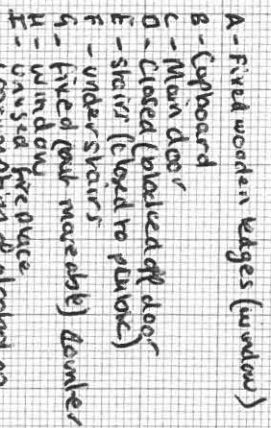 A - Fixed wooden ledges (window)
B - Cupboard
C - Main door
D - Closed (blocked off door
E - stairs (closed to public)
F - under stairs
G - fixed (but moveable) counter
H - window
I - unused fireplace